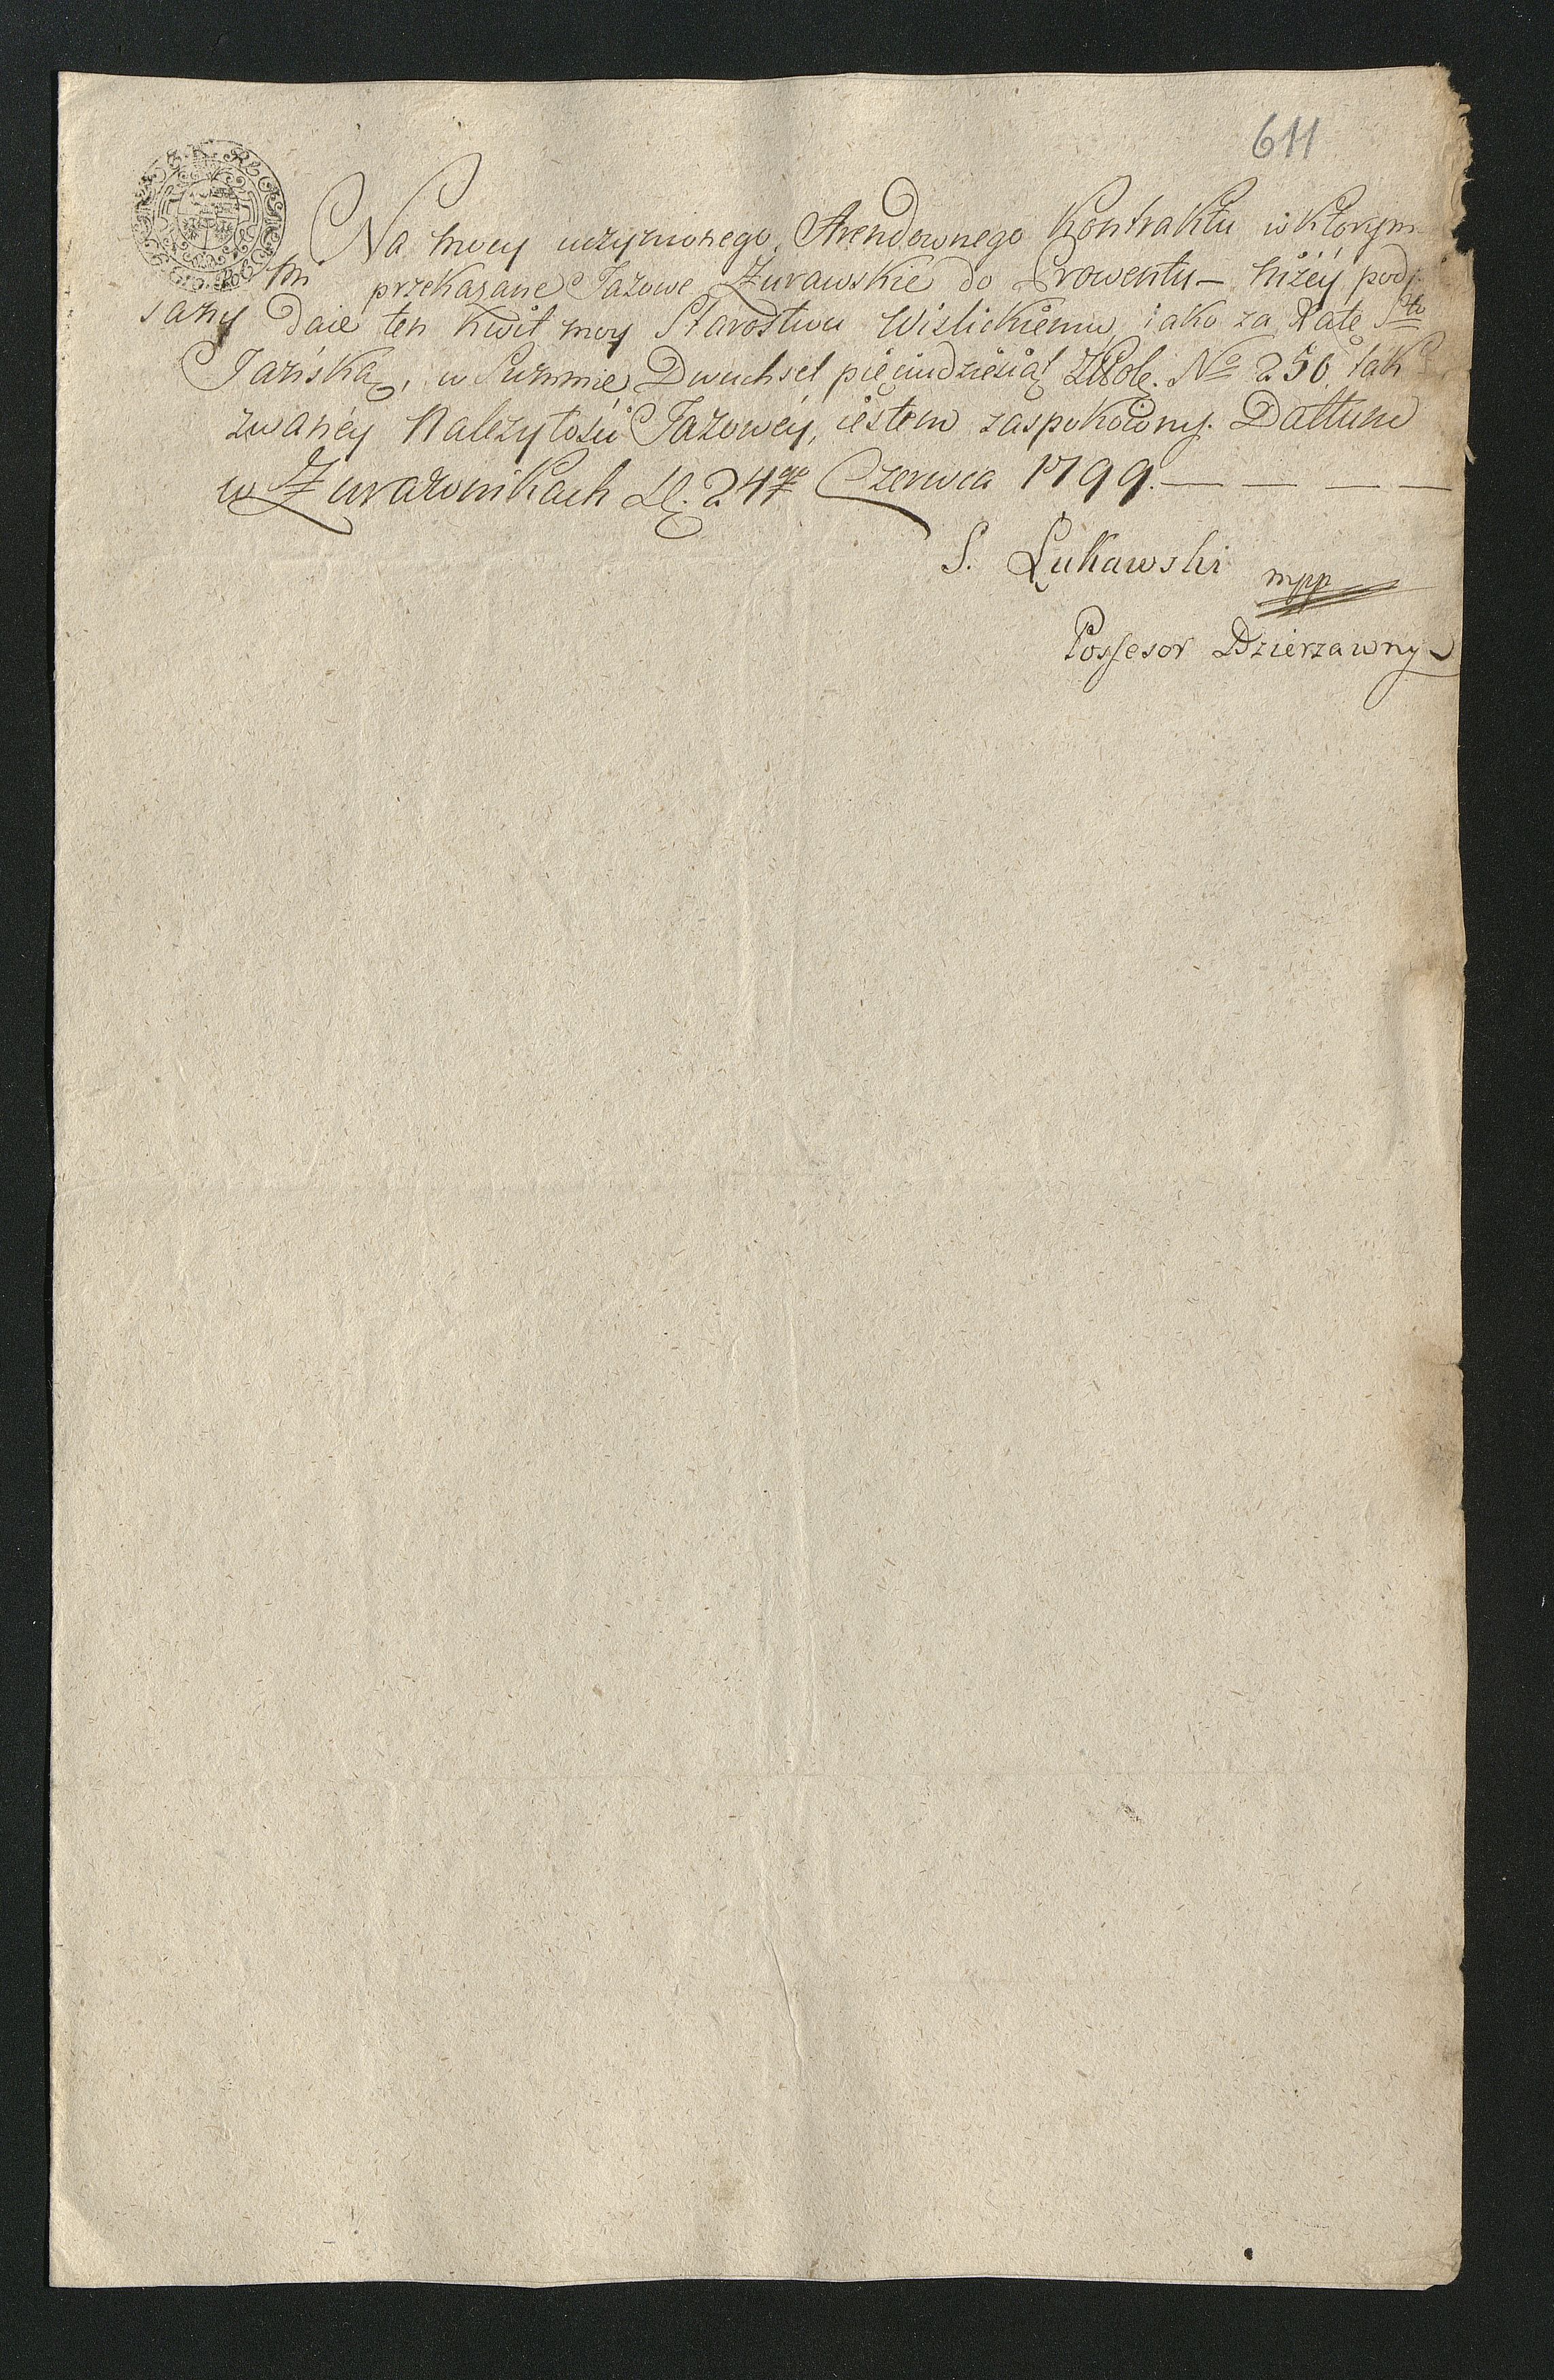 611
Na mocy uczynionego Arendownego Kontraktu w którym
mi przekazane Jazowe Zurawskie do Prowentu – niżéy podpi
sany daie ten kwit moy Starostwu Wiślickiemu iako za Rate S<sup>to</sup>
Jańską, w Summie Dwuchset pięciudziesiąt ZłPole. N<sup>o</sup> 250. tak
zwanéy Należytości Jazowéy, iestem zaspokoiony. Dattum
w Zurawnikach D. 24<sup>go</sup> Czerwca 1799. — — — —
S. Łukawski mpp
Possesor Dzierzawny